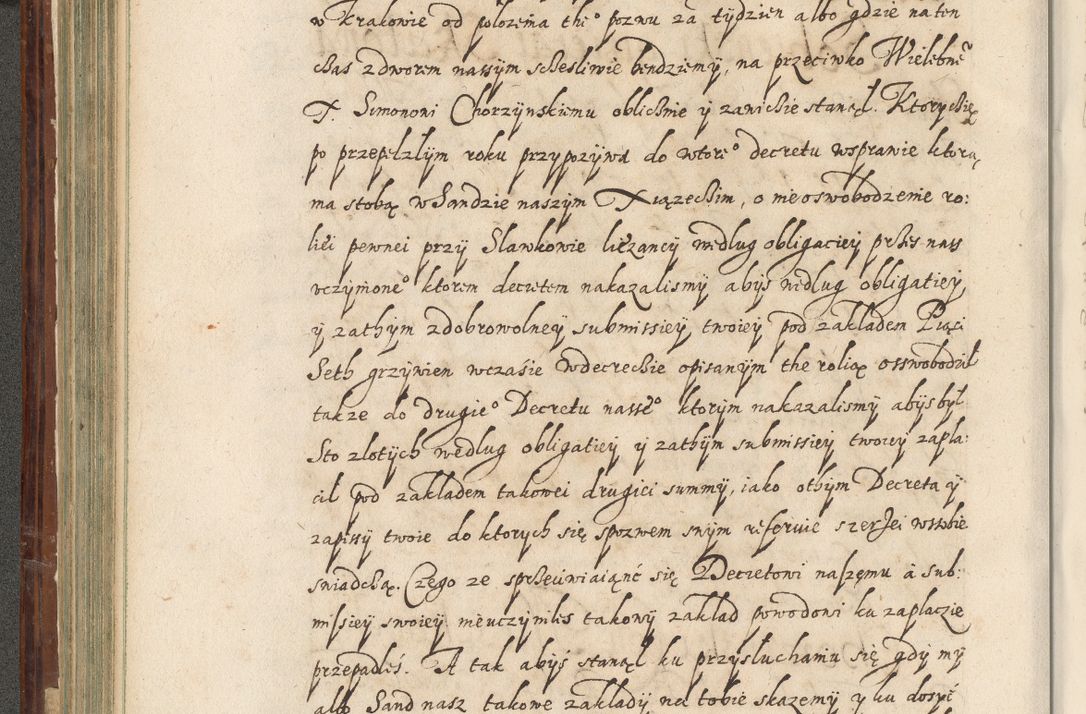 w Krakowie od położenia the° pozwu za tydzien albo gdzie na ten
czas z dworem nassym sczesliwie bendziemy, na przeciwko Wielebne°
X. Simononi Chorzynskiemu obliczmie y zawicie stanął. Ktory cię
po przepelzlym roku przypozywa do wtore° decretu w sprawie ktorą
ma stobą w Sandzie naszym Xiązeckim, o nieoswobodzenie ro:
liei pewnei przy Slawkowie liezancy według obligaciey przes nass
vczynione° ktorem decretem nakazalismy abys według obligatiey
y zathym z dobrowolney submissiey twoiey pod zakladem Piąci
Seth grzywien wczasie wdecrecie opisanym the rolią osswobodził
takze do drugie° Decretu nasse° ktorym nakazalismy abys był
Sto złotych według obligatiey y zathym submissiey twoiey zapla:
cił pod zakladem takowei drugiei summy, iako othym Decreta y
zapissy twoie do ktorych się spozwem swym referuie szerzei wsobie
swiadczą. Czego ze sprzeciwiaiąnć się Decretowi naszemu a sub:
missiey swoiey nieuczyniłes takowy zakład powodoni ku zaplacie
przepadłeś. A tak abyś stanął ku przysłuchaniu się gdy my
albo Sand nasz takowe zaklady na tobie skazemy y ku dosyć